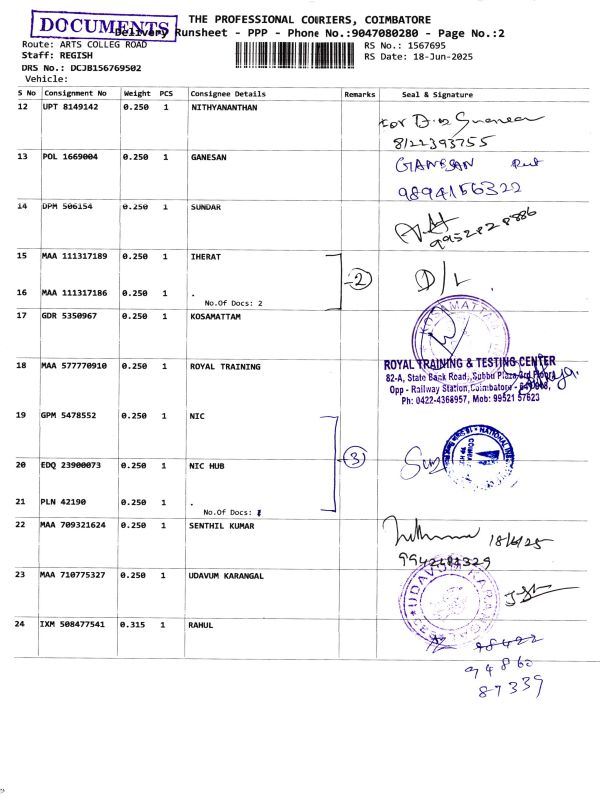 DOCUMENTS
THE PROFESSIONAL COURIERS, COIMBATORE
Delivery Runsheet - PPP - Phone No.:9047080280 - Page No.:2
Route: ARTS COLLEG ROAD
RS No.: 1567695
Staff: REGISH
RS Date: 18-Jun-2025
DRS No.: DCJB156769502
Vehicle:
S No Consignment No Weight PCS Consignee Details Remarks Seal & Signature
12 UPT 8149142 0.250 1 NITHYANANTHAN
8122393755
13 POL 1669004 0.250 1 GANESAN GANESAN
9894156322
14 DPM 506154 0.250 1 SUNDAR
9952828886
15 MAA 111317189 0.250 1 IHERAT
2 D/L
16 MAA 111317186 0.250 1 .
No.Of Docs: 2
17 GDR 5350967 0.250 1 KOSAMATTAM
KOSAMATTAM
18 MAA 577770910 0.250 1 ROYAL TRAINING
ROYAL TRAINING & TESTING CENTER
82-A, State Bank Road, Subbu Plaza, 3rd Floor,
Opp - Railway Station, Coimbatore - 641018,
Ph: 0422-4368957, Mob: 99521 57623
19 GPM 5478552 0.250 1 NIC
3
20 EDQ 23900073 0.250 1 NIC HUB
21 PLN 42190 0.250 1 .
No.Of Docs:
22 MAA 709321624 0.250 1 SENTHIL KUMAR
18/6/25
23 MAA 710775327 0.250 1 UDAVUM KARANGAL
UDAVUM KARANGAL
24 IXM 508477541 0.315 1 RAHUL
98422
94860
87339